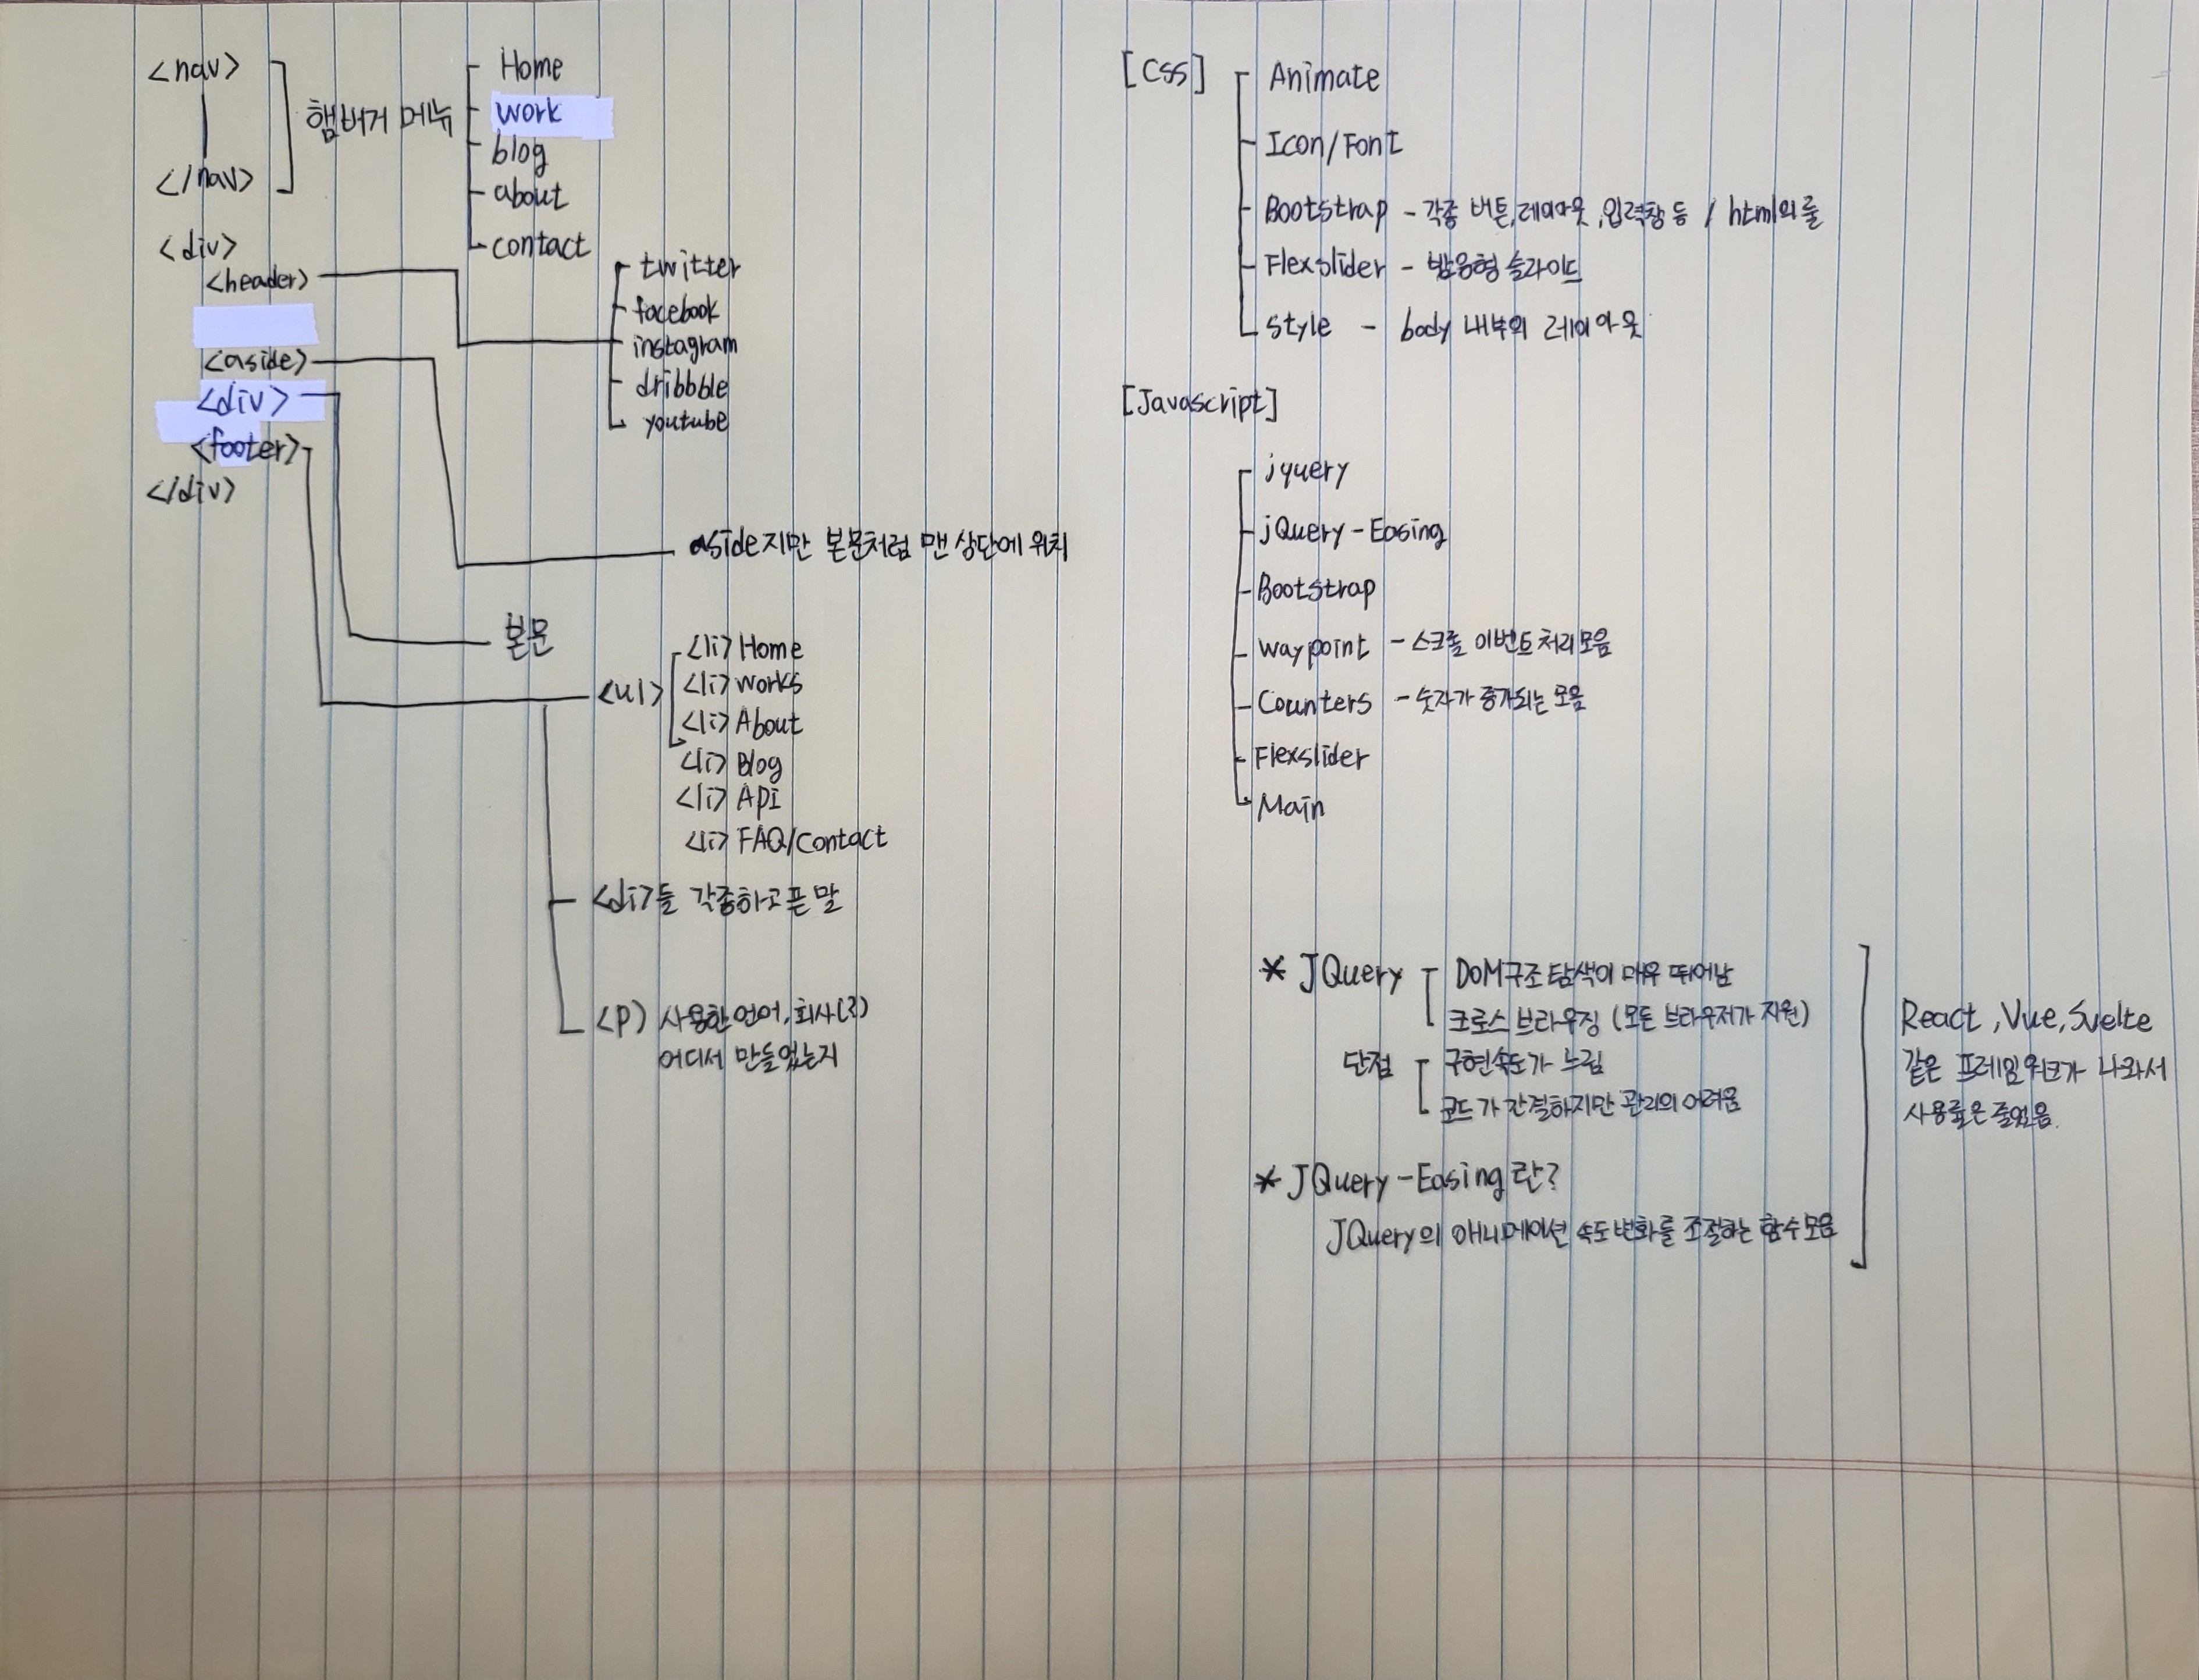 <nav>
</nav>
햄버거 메뉴
Home
work
blog
about
contact
<div>
<header>
<aside>
<div>
<footer>
</div>
twitter
facebook
instagram
dribbble
youtube
aside지만 본문처럼 맨 상단에 위치
본문
<ul>
<li> Home
<li> works
<li> About
<li> Blog
<li> API
<li> FAQ/Contact
<di>들 각종하고픈 말
<p) 사용한 언어, 회사(?)
어디서 만들었는지
[CSS]
Animate
Icon/Font
Bootstrap - 각종 버튼, 레이아웃, 입력창 등 / html의 툴
Flexslider - 반응형 슬라이드
style - body 내부의 레이아웃
[Javascript]
jquery
jQuery-Easing
Bootstrap
waypoint - 스크롤 이벤트 처리모음
Counters - 숫자가 증가되는 모음
Flexslider
Main
* JQuery
DoM구조 탐색이 매우 뛰어남
크로스 브라우징 (모든 브라우저가 지원)
단점
구현속도가 느림
코드가 간결하지만 관리의 어려움
* JQuery-Easing란?
JQuery의 애니메이션 속도 변화를 조절하는 함수모음
React, Vue, Svelte
같은 프레임워크가 나와서
사용률은 줄었음.